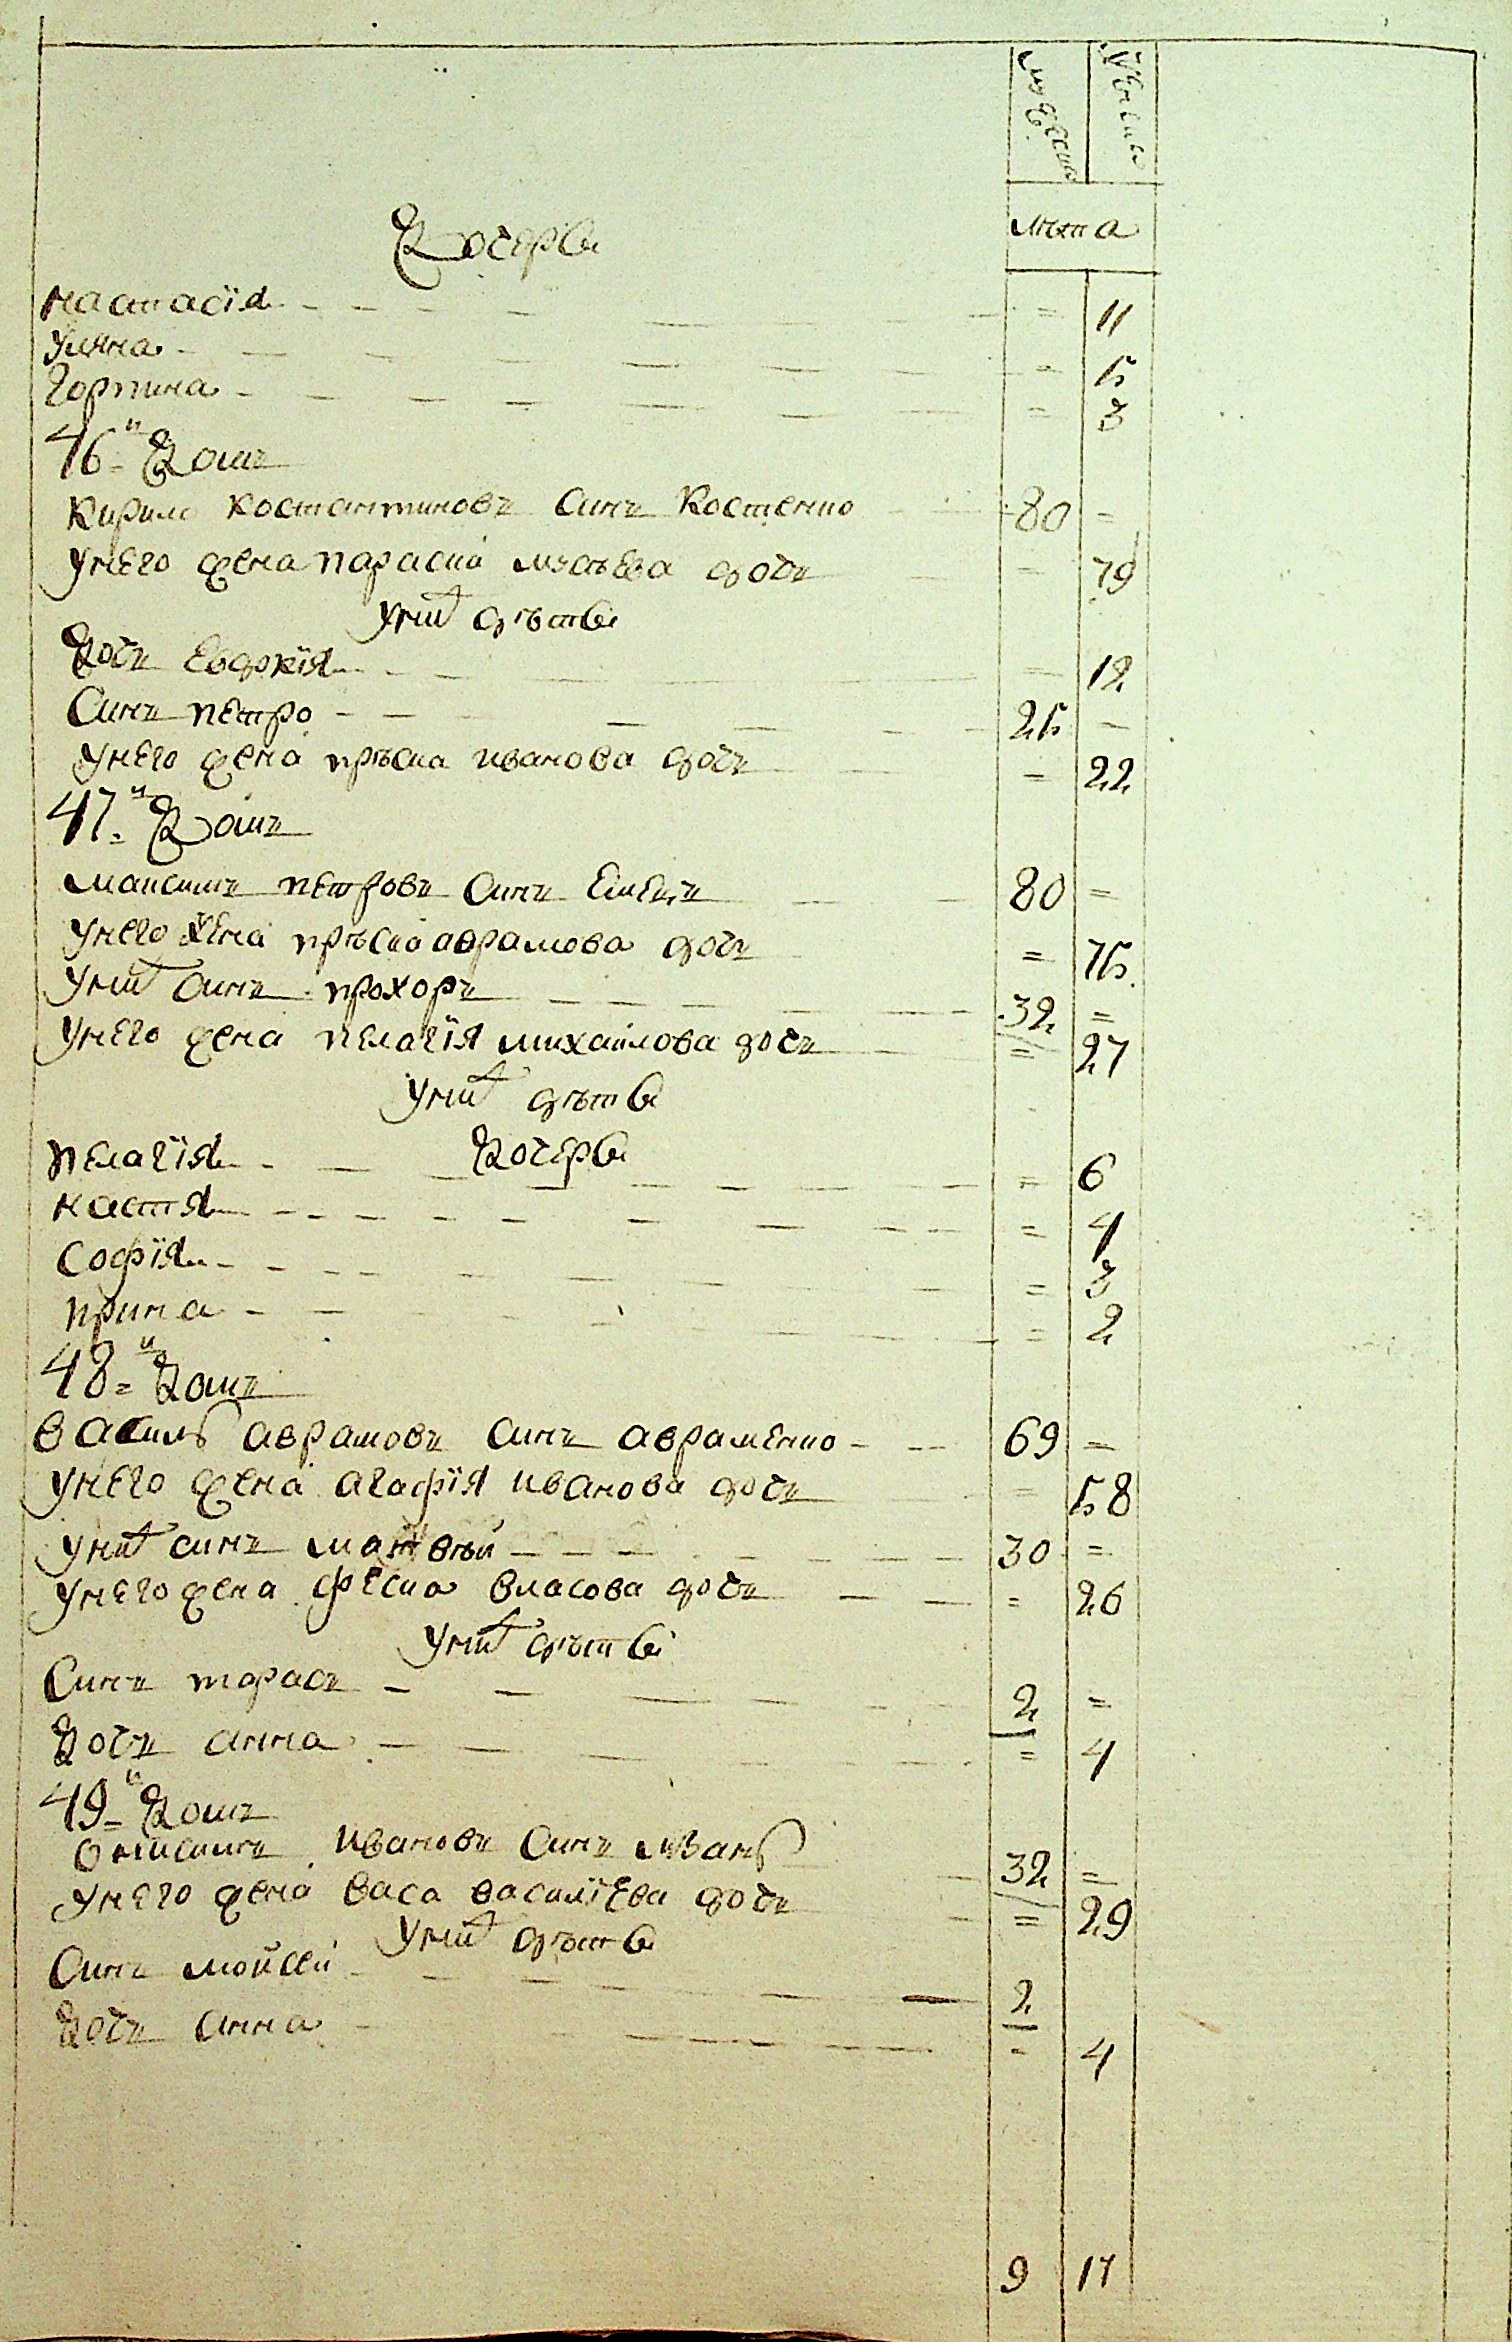 мужеска женска
лѣта
Дочеры
настасія = 11
уляна = 5
горпина = 3
46й Домъ
кирило костантиновъ синъ костенко 80 =
унего жена параска матвѣева дочъ = 79
унихъ дѣты
Дочъ евдокія = 12
Синъ петро 25 =
унего жена прѣска иванова дочъ = 22
47й Домъ
максимъ петровъ синъ емецъ 80 =
унего жена прѣска аврамова дочъ = 75
унихъ синъ прохоръ 32 =
унего жена пелагія михайлова дочъ = 27
унихъ дѣты
Дочеры
пелагія = 6
настя = 4
софія = 3
ирина = 2
48й Домъ
василь аврамовъ синъ авраменко 69 =
унего жена агафія иванова дочъ = 58
унихъ синъ матвѣй 30 =
унего жена феска власова дочъ = 26
унихъ дѣты
Синъ тарасъ 2 =
Дочъ анна = 4
49й Домъ
онисимъ ивановъ синъ 32 =
унего жена васа василіева дочъ = 29
унихъ дѣты
Синъ мойсей 2
Дочъ анна = 4
9 17